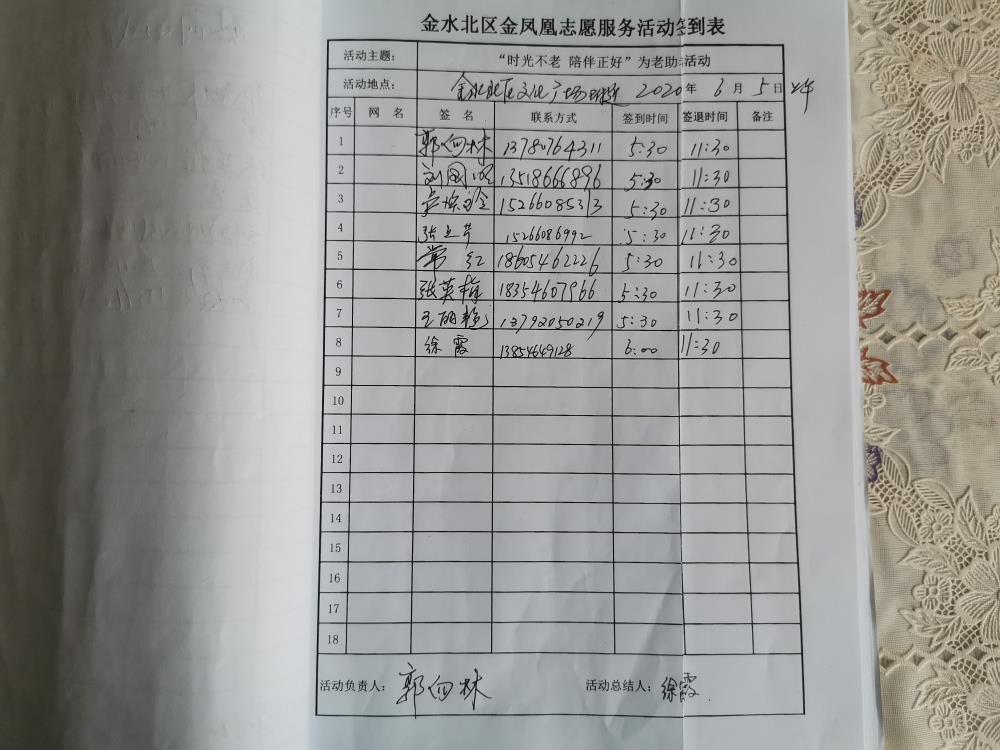 金水北区金凤凰志愿服务活动签到表
活动主题： “时光不老 陪伴正好”为老助活动
活动地点： 金水北区文化广场 2020 年 6 月 5 日
序号 网 名 签 名 联系方式 签到时间 签退时间 备注
1 郭向林 13780764311 5:30 11:30
2 刘国 13518666896 5:30 11:30
3 15266085313 5:30 11:30
4 张立芹 15266086992 5:30 11:30
5 常红 18605462226 5:30 11:30
6 张英梅 18354607966 5:30 11:30
7 王丽 13792050219 5:30 11:30
8 徐霞 13854649128 6:00 11:30
9
10
11
12
13
14
15
16
17
18
活动负责人： 郭向林 活动总结人： 徐霞